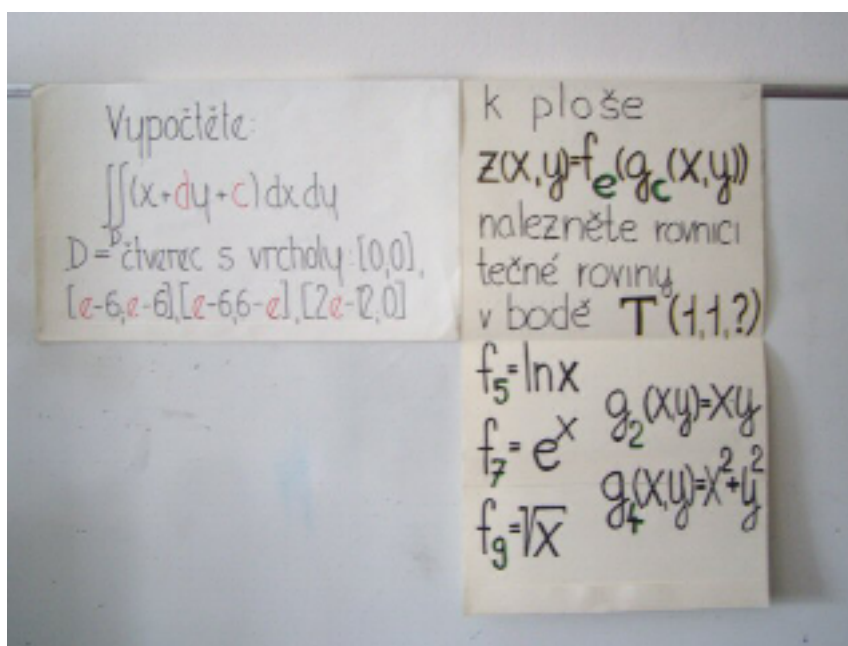 Vypočtěte:
∬(x+dy+c)dxdy
D
D = čtverec s vrcholy:[0,0],
[e-6,e-6],[e-6,6-e],[2e-12,0]
k ploše
z(x,y)=fe(gc(x,y))
nalezněte rovnici
tečné roviny
v bodě T(1,1,?)
f5=lnx
g2(x,y)=x·y
f7=e^x
g4(x,y)=x²+y²
f9=√x